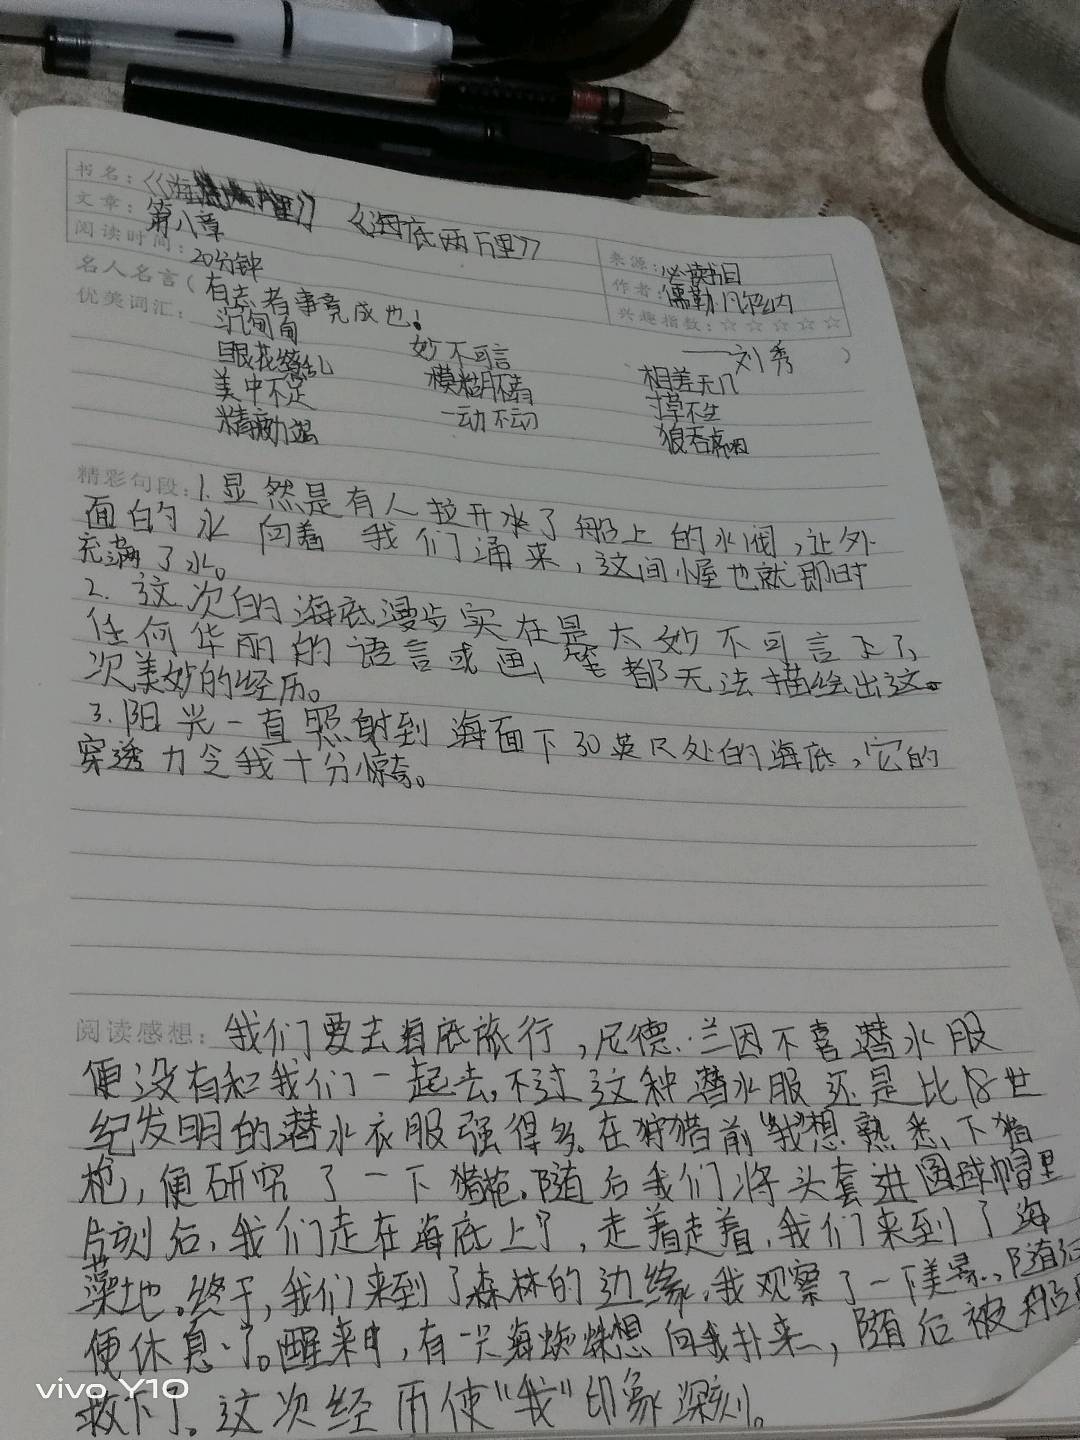 书名：《海里》 《海底两万里》
文章：第八章
阅读时间：20分钟
来源：必读书目
作者：儒勒·凡尔纳
兴趣指数：☆☆☆☆☆
名人名言（有志者事竟成也！ ——刘秀 ）
优美词汇：沉甸甸 妙不可言 相差无几
眼花缭乱 模糊不清 寸草不生
美中不足 一动不动 狼吞虎咽
精疲力竭
精彩句段：1.显然是有人拉开了船上的水阀，让外
面的水向着我们涌来，这间小屋也就即时
充满了水。
2.这次的海底漫步实在是太妙不可言了，
任何华丽的语言或画笔都无法描绘出这
次美妙的经历。
3.阳光一直照射到海面下30英尺处的海底，它的
穿透力令我十分惊奇。
阅读感想：我们要去海底旅行，尼德·兰因不喜潜水服
便没有和我们一起去。不过这种潜水服还是比18世
纪发明的潜水衣服强得多。在狩猎前"我"想熟悉下猎
枪，便研究了一下猎枪。随后我们将头套进圆球帽里
片刻后，我们走在海底上了，走着走着，我们来到了海
藻地。终于，我们来到了森林的边缘，我观察了一下美景，随后
便休息了。醒来时，有一只海蜘蛛想向我扑来，随后被
救下了。这次经历使"我"印象深刻。
vivo Y10